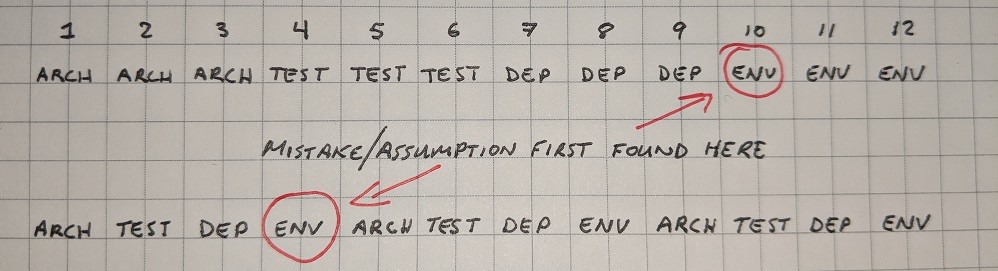 1 2 3 4 5 6 7 8 9 10 11 12
ARCH ARCH ARCH TEST TEST TEST DEP DEP DEP ENV ENV ENV
MISTAKE/ASSUMPTION FIRST FOUND HERE
ARCH TEST DEP ENV ARCH TEST DEP ENV ARCH TEST DEP ENV